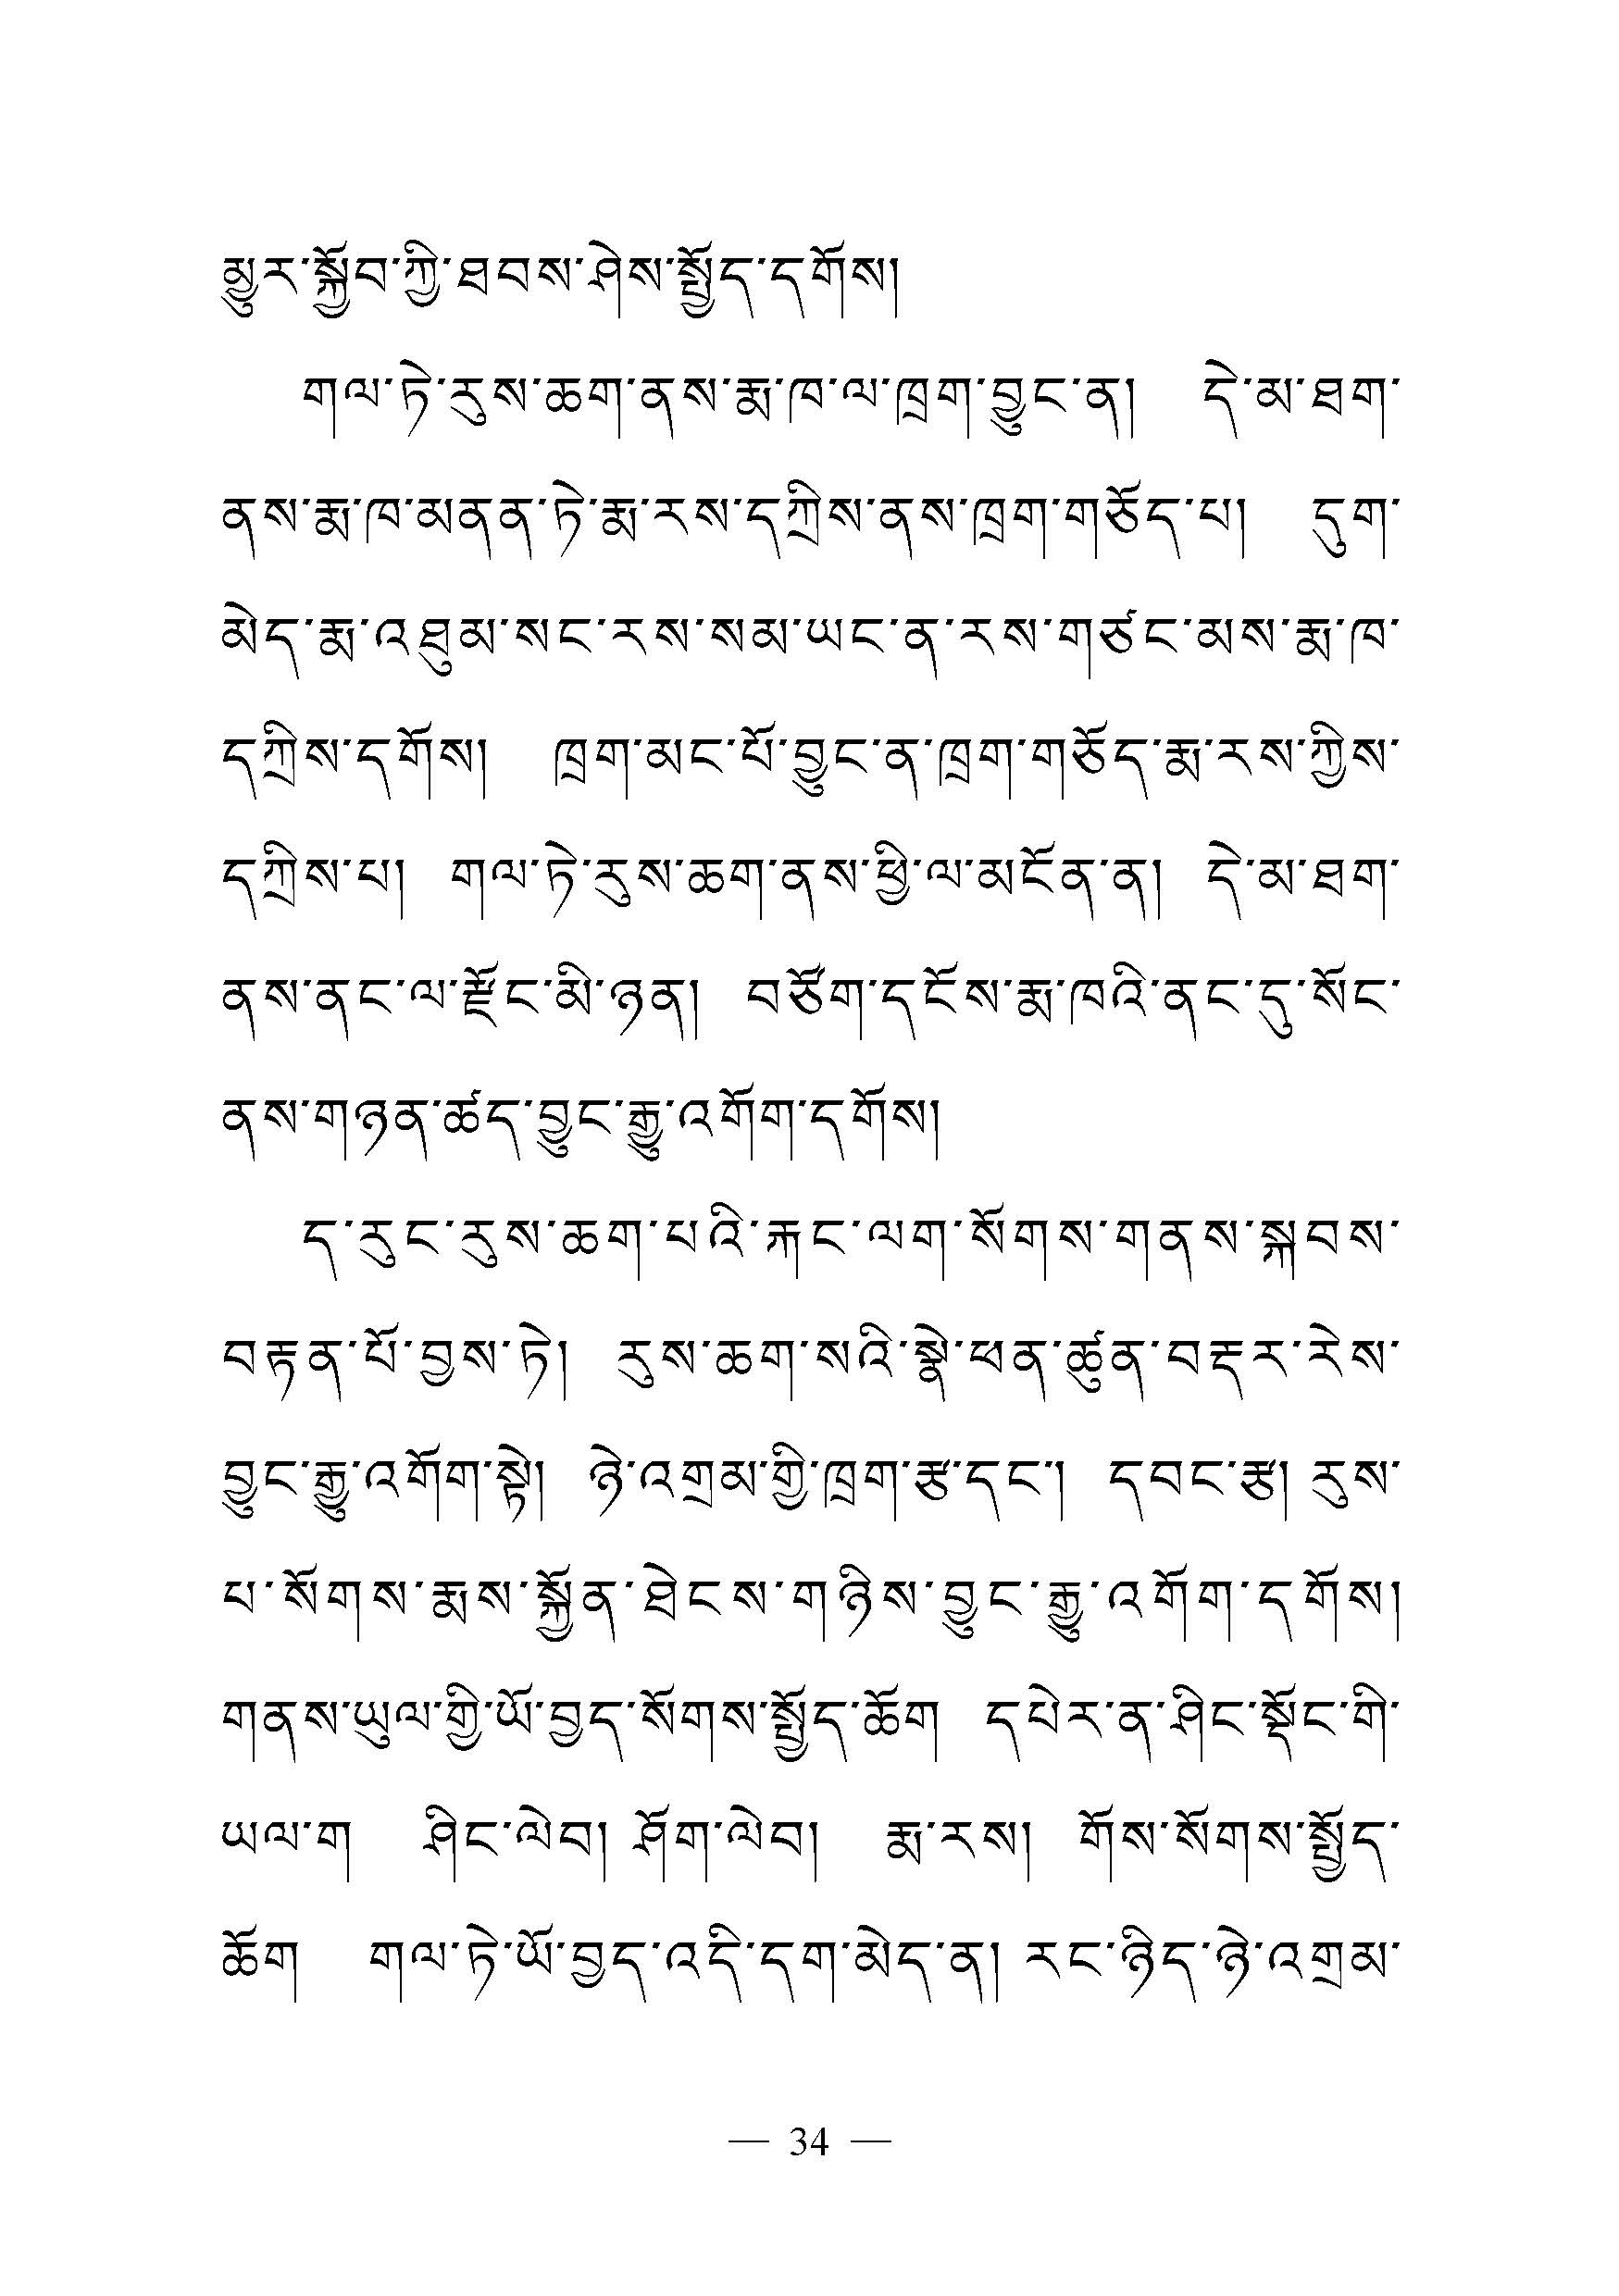 མྱུར་སྐྱོབ་ཀྱི་ཐབས་ཤེས་སྤྱོད་དགོས།
གལ་ཏེ་རུས་ཆག་ནས་རྨ་ཁ་ལ་ཁྲག་བྱུང་ན།  དེ་མ་ཐག་
ནས་རྨ་ཁ་མནན་ཏེ་རྨ་རས་དཀྲིས་ནས་ཁྲག་གཅོད་པ།  དུག་
མེད་རྨ་འཐུམ་སང་རས་སམ་ཡང་ན་རས་གཙང་མས་རྨ་ཁ་
དཀྲིས་དགོས།  ཁྲག་མང་པོ་བྱུང་ན་ཁྲག་གཅོད་རྨ་རས་ཀྱིས་
དཀྲིས་པ།  གལ་ཏེ་རུས་ཆག་ནས་ཕྱི་ལ་མངོན་ན།  དེ་མ་ཐག་
ནས་ནང་ལ་རྫོང་མི་ཉན།  བཙོག་དངོས་རྨ་ཁའི་ནང་དུ་སོང་
ནས་གཉན་ཚད་བྱུང་རྒྱུ་འགོག་དགོས།
ད་རུང་རུས་ཆག་པའི་རྐང་ལག་སོགས་གནས་སྐབས་
བརྟན་པོ་བྱས་ཏེ།  རུས་ཆག་སའི་སྣེ་ཕན་ཚུན་བརྡར་རེས་
བྱུང་རྒྱུ་འགོག་སྟེ།  ཉེ་འགྲམ་གྱི་ཁྲག་རྩ་དང་།  དབང་རྩ། རུས་
པ་སོགས་རྨས་སྐྱོན་ཐེངས་གཉིས་བྱུང་རྒྱུ་འགོག་དགོས།
གནས་ཡུལ་གྱི་ཡོ་བྱད་སོགས་སྤྱོད་ཆོག  དཔེར་ན་ཤིང་སྡོང་གི་
ཡལ་ག  ཤིང་ལེབ། ཤོག་ལེབ།  རྨ་རས།  གོས་སོགས་སྤྱོད་
ཆོག  གལ་ཏེ་ཡོ་བྱད་འདི་དག་མེད་ན། རང་ཉིད་ཉེ་འགྲམ་
— 34 —